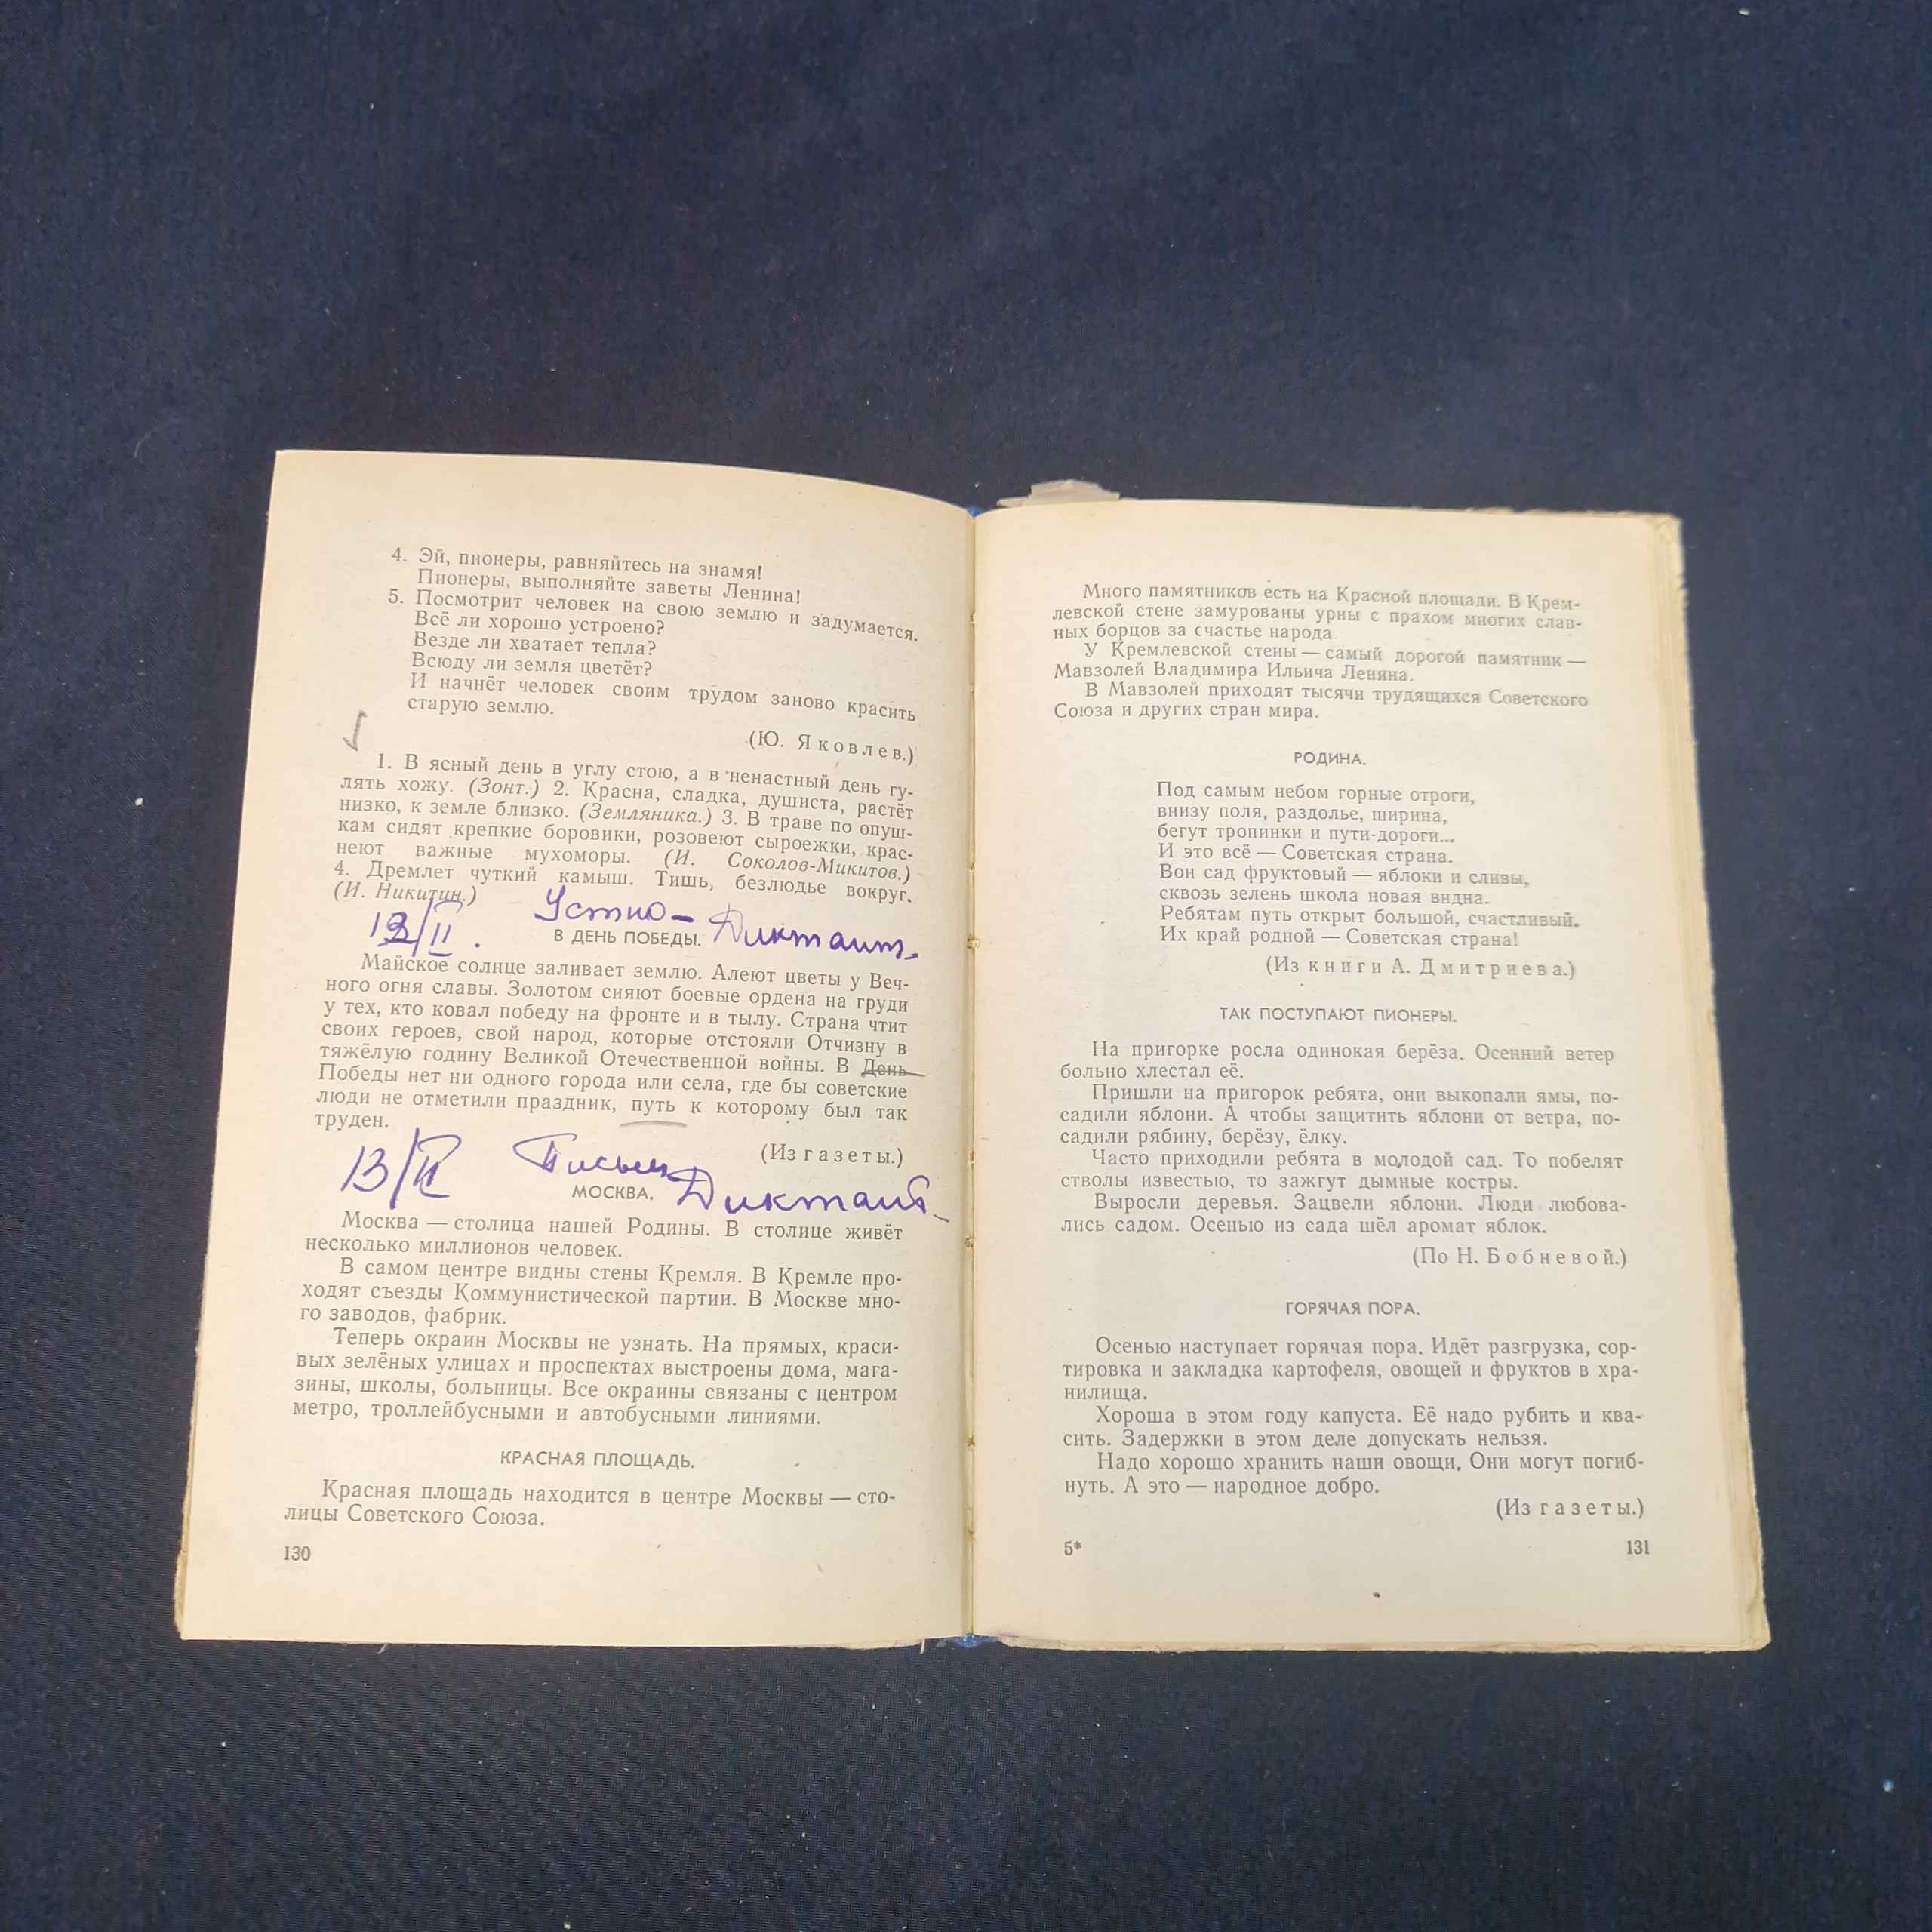 4. Эй, пионеры, равняйтесь на знамя!
Пионеры, выполняйте заветы Ленина!
5. Посмотрит человек на свою землю и задумается.
Всё ли хорошо устроено?
Везде ли хватает тепла?
Всюду ли земля цветёт?
И начнёт человек своим трудом заново красить
старую землю.
(Ю. Яковлев.)
1. В ясный день в углу стою, а в ненастный день гу-
лять хожу. (Зонт.) 2. Красна, сладка, душиста, растёт
низко, к земле близко. (Земляника.) 3. В траве по опуш-
кам сидят крепкие боровики, розовеют сыроежки, крас-
неют важные мухоморы. (И. Соколов-Микитов.)
4. Дремлет чуткий камыш. Тишь, безлюдье вокруг.
(И. Никитин.)
12/II. Устно- Диктант.
В ДЕНЬ ПОБЕДЫ.
Майское солнце заливает землю. Алеют цветы у Веч-
ного огня славы. Золотом сияют боевые ордена на груди
у тех, кто ковал победу на фронте и в тылу. Страна чтит
своих героев, свой народ, которые отстояли Отчизну в
тяжёлую годину Великой Отечественной войны. В День
Победы нет ни одного города или села, где бы советские
люди не отметили праздник, путь к которому был так
труден.
(Из газеты.)
13/II Письм Диктант
МОСКВА.
Москва — столица нашей Родины. В столице живёт
несколько миллионов человек.
В самом центре видны стены Кремля. В Кремле про-
ходят съезды Коммунистической партии. В Москве мно-
го заводов, фабрик.
Теперь окраин Москвы не узнать. На прямых, краси-
вых зелёных улицах и проспектах выстроены дома, мага-
зины, школы, больницы. Все окраины связаны с центром
метро, троллейбусными и автобусными линиями.
КРАСНАЯ ПЛОЩАДЬ.
Красная площадь находится в центре Москвы — сто-
лицы Советского Союза.
130
Много памятников есть на Красной площади. В Крем-
левской стене замурованы урны с прахом многих слав-
ных борцов за счастье народа.
У Кремлевской стены — самый дорогой памятник —
Мавзолей Владимира Ильича Ленина.
В Мавзолей приходят тысячи трудящихся Советского
Союза и других стран мира.
РОДИНА.
Под самым небом горные отроги,
внизу поля, раздолье, ширина,
бегут тропинки и пути-дороги...
И это всё — Советская страна.
Вон сад фруктовый — яблоки и сливы,
сквозь зелень школа новая видна.
Ребятам путь открыт большой, счастливый.
Их край родной — Советская страна!
(Из книги А. Дмитриева.)
ТАК ПОСТУПАЮТ ПИОНЕРЫ.
На пригорке росла одинокая берёза. Осенний ветер
больно хлестал её.
Пришли на пригорок ребята, они выкопали ямы, по-
садили яблони. А чтобы защитить яблони от ветра, по-
садили рябину, берёзу, ёлку.
Часто приходили ребята в молодой сад. То побелят
стволы известью, то зажгут дымные костры.
Выросли деревья. Зацвели яблони. Люди любова-
лись садом. Осенью из сада шёл аромат яблок.
(По Н. Бобневой.)
ГОРЯЧАЯ ПОРА.
Осенью наступает горячая пора. Идёт разгрузка, сор-
тировка и закладка картофеля, овощей и фруктов в хра-
нилища.
Хороша в этом году капуста. Её надо рубить и ква-
сить. Задержки в этом деле допускать нельзя.
Надо хорошо хранить наши овощи. Они могут погиб-
нуть. А это — народное добро.
(Из газеты.)
5* 131